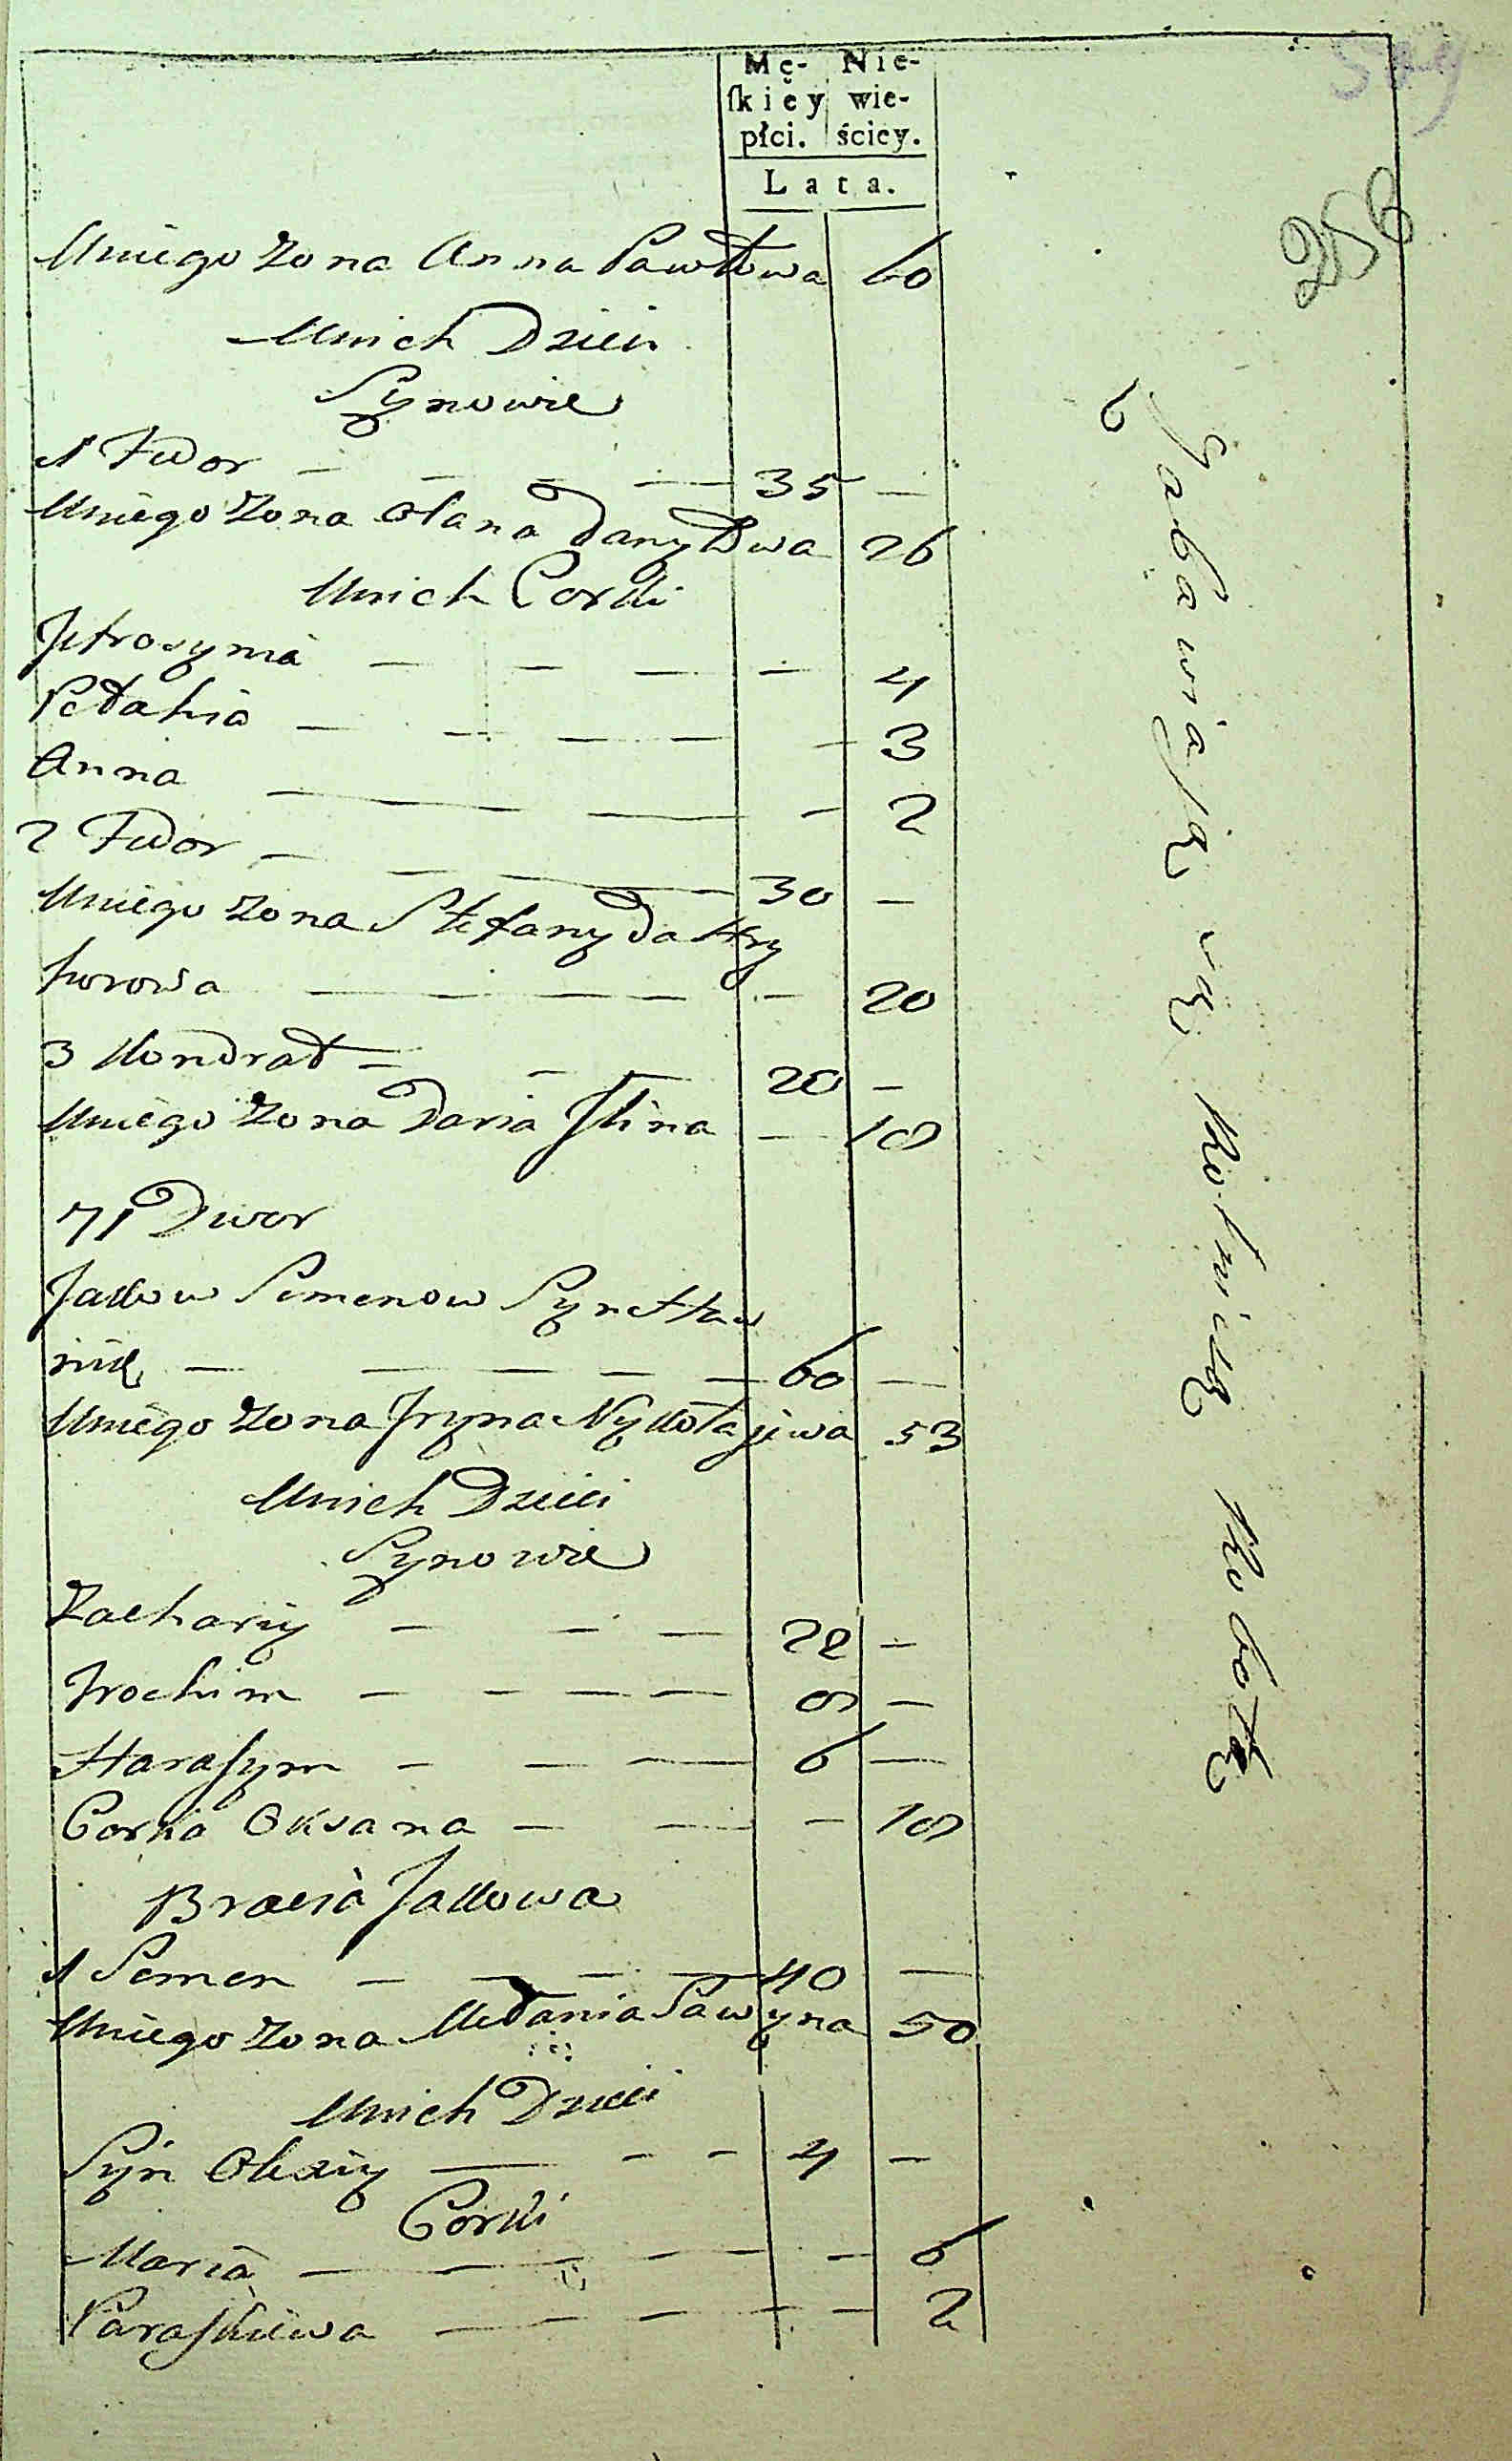 Mę- Nie-
ſkiey wie-
płci. ściey.
Lata.
256
Uniego Zona Anna Pawłowa 60
Unich Dzieci
Synowie
1 Fedor — — — — 35 —
Uniego Zona Olana Danyłowa 26
Unich Corki
Jefrosyma — — — — 4
Pełahia — — — — — 3
Anna — — — — 2
2 Fedor — — — 30 —
Uniego Zona Stefanyda Hry
horowa — — — — — 20
3 Kondrat — — — 20 —
Uniego Zona Daria Jlina — 18
71 Dwor
Jakow Semenow Syn
60 —
Uniego Zona Jryna Nykołajewa 53
Unich Dzieci
Synowie
Zachariy — — — 22 —
Trochim — — — — 8 —
Harasym — — — 6 —
Corka Oksana — — — 18
Bracia Jakowa
1 Semen — — — — 40 —
Uniego Zona Mełania Sawyna 50
Unich Dzieci
Syn Olexiy — — — 4 —
Corki
Maria — — — — — 6
Paraskiewa — — — — — 2
Zabawiaią się Rolniczą Robotą